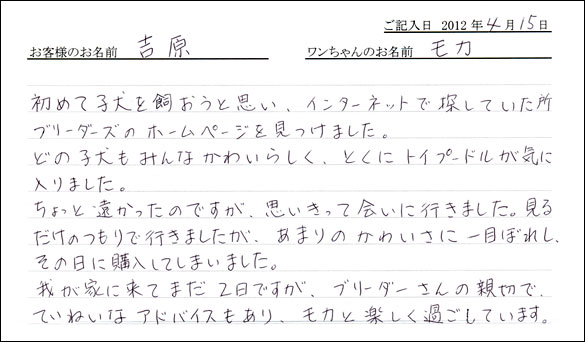 ご記入日 2012年4月15日
お客様のお名前 吉原 ワンちゃんのお名前 モカ
初めて子犬を飼おうと思い、インターネットで探していた所
ブリーダーズのホームページを見つけました。
どの子犬もみんなかわいらしく、とくにトイプードルが気に
入りました。
ちょっと遠かったのですが、思いきって会いに行きました。見る
だけのつもりで行きましたが、あまりのかわいさに一目ぼれし、
その日に購入してしまいました。
我が家に来てまだ2日ですが、ブリーダーさんの親切で、
ていねいなアドバイスもあり、モカと楽しく過ごしています。